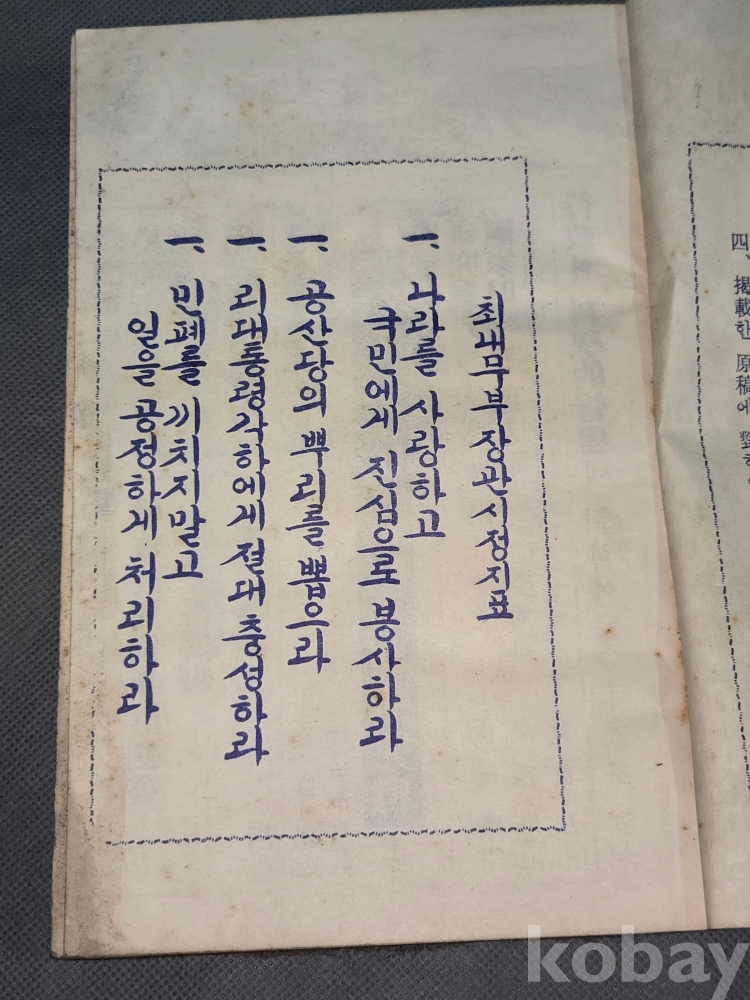 四、揭載한 原稿에 對
최내무부장관시정지표
一. 나라를 사랑하고
국민에게 진심으로 봉사하라
一. 공산당의 뿌리를 뽑으라
一. 리대통령각하에게 절대 충성하라
一. 민폐를 끼치지말고
일을 공정하게 처리하라
kobay